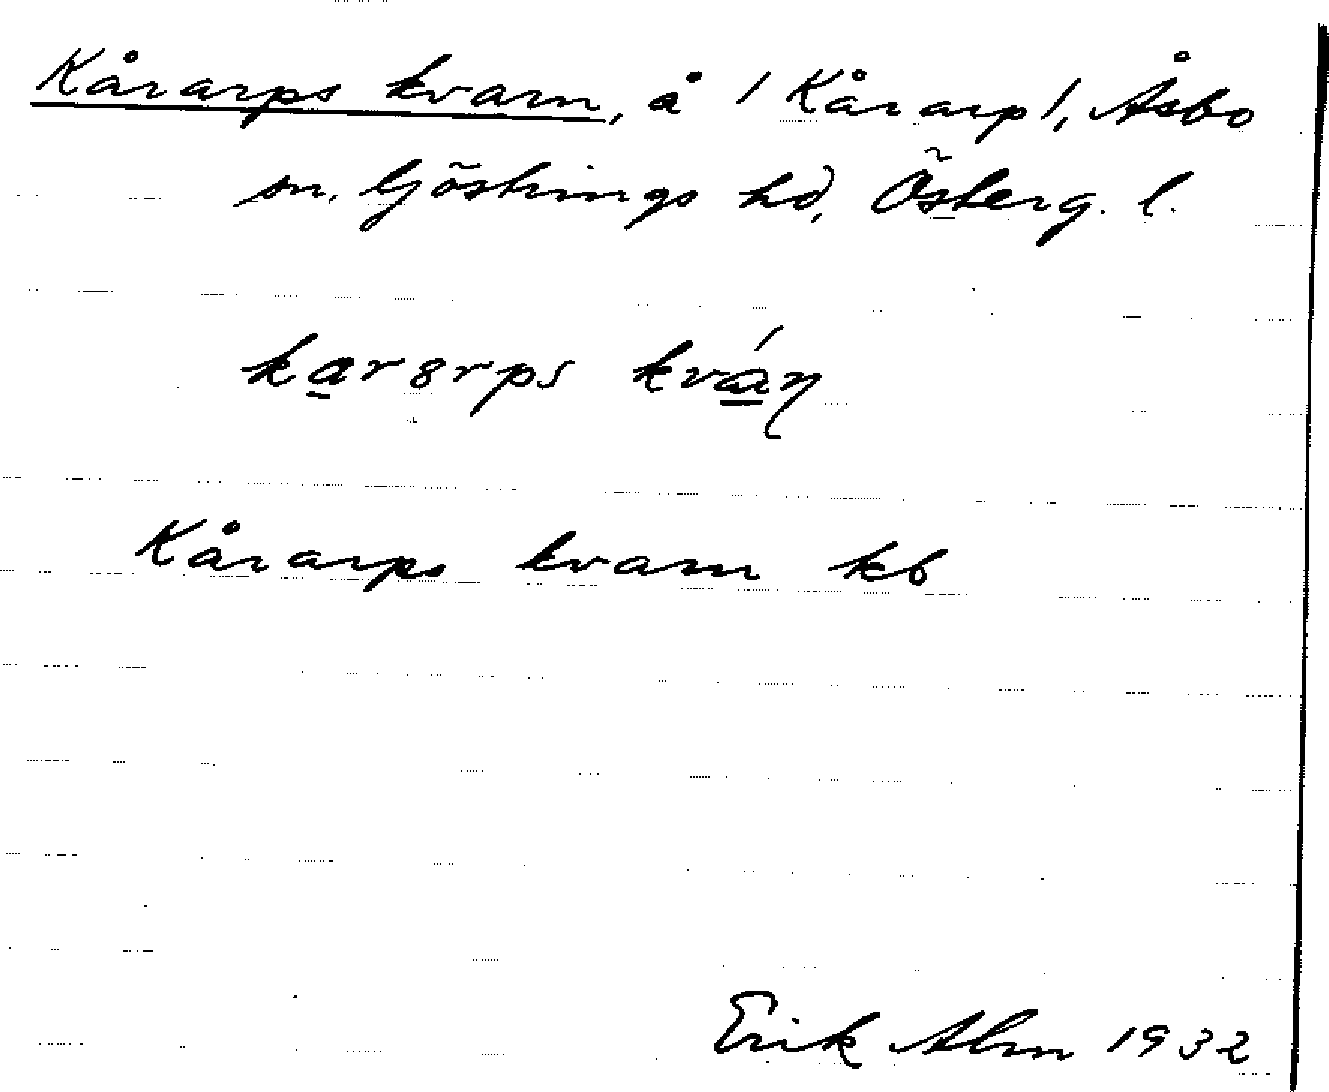 Kårarps kvarn, å /Kårarp/, Åsbo
sn. Göstrings hd, Österg. l.
karsrps kván
Kårarps kvarn kb
Erik Alm 1932